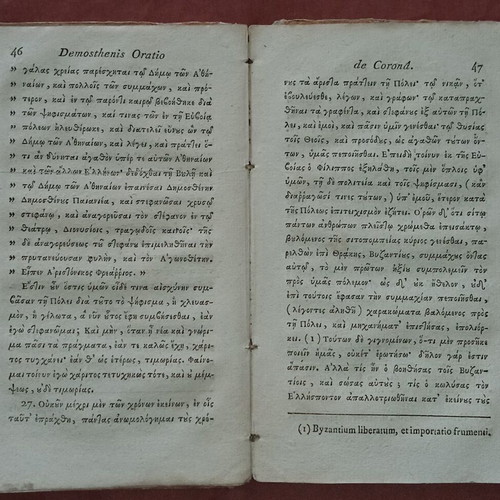 46 Demosthenis Oratio
" γάλας χρείας παρέσχηται τῷ Δήμῳ τῶν Ἀθη-
" ναίων, καὶ πολλοῖς τῶν συμμάχων, καὶ πρό-
" τερον, καὶ ἐν τῷ παρόντι καιρῷ βεβοήθηκε διὰ
" τῶν ψηφισμάτων, καί τινας τῶν ἐν τῇ Εὐβοίᾳ
" πόλεων ἠλευθέρωκε, καὶ διατελεῖ εὔνους ὢν τῷ
" Δήμῳ τῶν Ἀθηναίων, καὶ λέγει, καὶ πράττει ὅ-
" τι ἂν δύνηται ἀγαθὸν ὑπέρ τε αὐτῶν Ἀθηναίων
" καὶ τῶν ἄλλων Ἑλλήνων· δεδόχθαι τῇ Βουλῇ καὶ
" τῷ Δήμῳ τῶν Ἀθηναίων ἐπαινέσαι Δημοσθένην
" Δημοσθένους Παιανιέα, καὶ στεφανῶσαι χρυσῷ
" στεφάνῳ, καὶ ἀναγορεῦσαι τὸν στέφανον ἐν τῷ
" θεάτρῳ, Διονυσίοις, τραγῳδοῖς καινοῖς· τῆς
" δὲ ἀναγορεύσεως τοῦ στεφάνου ἐπιμεληθῆναι τὴν
" πρυτανεύουσαν φυλὴν, καὶ τὸν Ἀγωνοθέτην.
" Εἶπεν Ἀριστόνικος Φρεάρριος. "
Ἔστιν οὖν ὅστις ὑμῶν οἶδέ τινα αἰσχύνην συμ-
βᾶσαν τῇ Πόλει διὰ τοῦτο τὸ ψήφισμα, ἢ χλευασ-
μὸν, ἢ γέλωτα, ἃ νῦν οὗτος ἔφη συμβήσεσθαι, ἐὰν
ἐγὼ στεφανῶμαι; Καὶ μὴν, ὅταν ᾖ νέα καὶ γνώρι-
μα πᾶσι τὰ πράγματα, ἐάν τε καλῶς ἔχῃ, χάρι-
τος τυγχάνει· ἐάν θ' ὡς ἑτέρως, τιμωρίας. Φαίνο-
μαι τοίνυν ἐγὼ χάριτος τετυχηκὼς τότε, καὶ οὐ μέμ-
ψεως, οὐδὲ τιμωρίας.
27. Οὐκοῦν μέχρι μὲν τῶν χρόνων ἐκείνων, ἐν οἷς
ταῦτ' ἐπράχθη, πάντας ἀνωμολόγημαι τοὺς χρό-
de Coronâ. 47
νους τὰ ἄριστα πράττειν τῇ Πόλει· τῷ νικᾶν, ὅτ'
ἐβουλεύεσθε, λέγων, καὶ γράφων· τῷ καταπραχ-
θῆναι τὰ γραφέντα, καὶ στεφάνους ἐξ αὐτῶν τῇ Πό-
λει, καὶ ἐμοὶ, καὶ πᾶσιν ὑμῖν γενέσθαι· τῷ θυσίας
τοῖς Θεοῖς, καὶ προσόδους, ὡς ἀγαθῶν τούτων ὄν-
των, ὑμᾶς πεποιῆσθαι. Ἐπειδὴ τοίνυν ἐκ τῆς Εὐ-
βοίας ὁ Φίλιππος ἐξηλάθη, τοῖς μὲν ὅπλοις ὑφ'
ὑμῶν, τῇ δὲ πολιτείᾳ καὶ τοῖς ψηφίσμασι, (κἂν
διαῤῥαγῶσί τινες τούτων,) ὑπ' ἐμοῦ, ἕτερον κατὰ
τῆς Πόλεως ἐπιτειχισμὸν ἐζήτει. Ὁρῶν δ' ὅτι σίτῳ
πάντων ἀνθρώπων πλείστῳ χρώμεθα ἐπεισάκτῳ,
βουλόμενος τῆς σιτοπομπείας κύριος γενέσθαι, πα-
ρελθὼν ἐπὶ Θρᾴκης, Βυζαντίους, συμμάχους ὄντας
αὑτῷ, τὸ μὲν πρῶτον ἠξίου συμπολεμεῖν τὸν
πρὸς ὑμᾶς πόλεμον· ὡς δ' οὐκ ἤθελον, οὐδ'
ἐπὶ τούτοις ἔφασαν τὴν συμμαχίαν πεποιῆσθαι,
(λέγοντες ἀληθῆ) χαράκωμα βαλόμενος πρὸς
τῇ Πόλει, καὶ μηχανήματ' ἐπιστήσας, ἐπολιόρ-
κει. (1) Τούτων δὲ γενομένων, ὅ-τι μὲν προσῆκε
ποιεῖν ἡμᾶς, οὐκέτ' ἐρωτήσω· δῆλον γάρ ἐστιν
ἅπασιν. Ἀλλὰ τίς ἦν ὁ βοηθήσας τοῖς Βυζαν-
τίοις, καὶ σώσας αὐτούς; τίς ὁ κωλύσας τὸν
Ἑλλήσποντον ἀπαλλοτριωθῆναι κατ' ἐκείνους τοὺς
(1) Byzantium liberatum, et importatio frumenti.